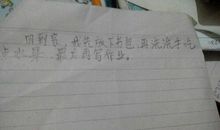 回到家，我先放下书包，再洗洗手吃
点水果，最后再写作业。